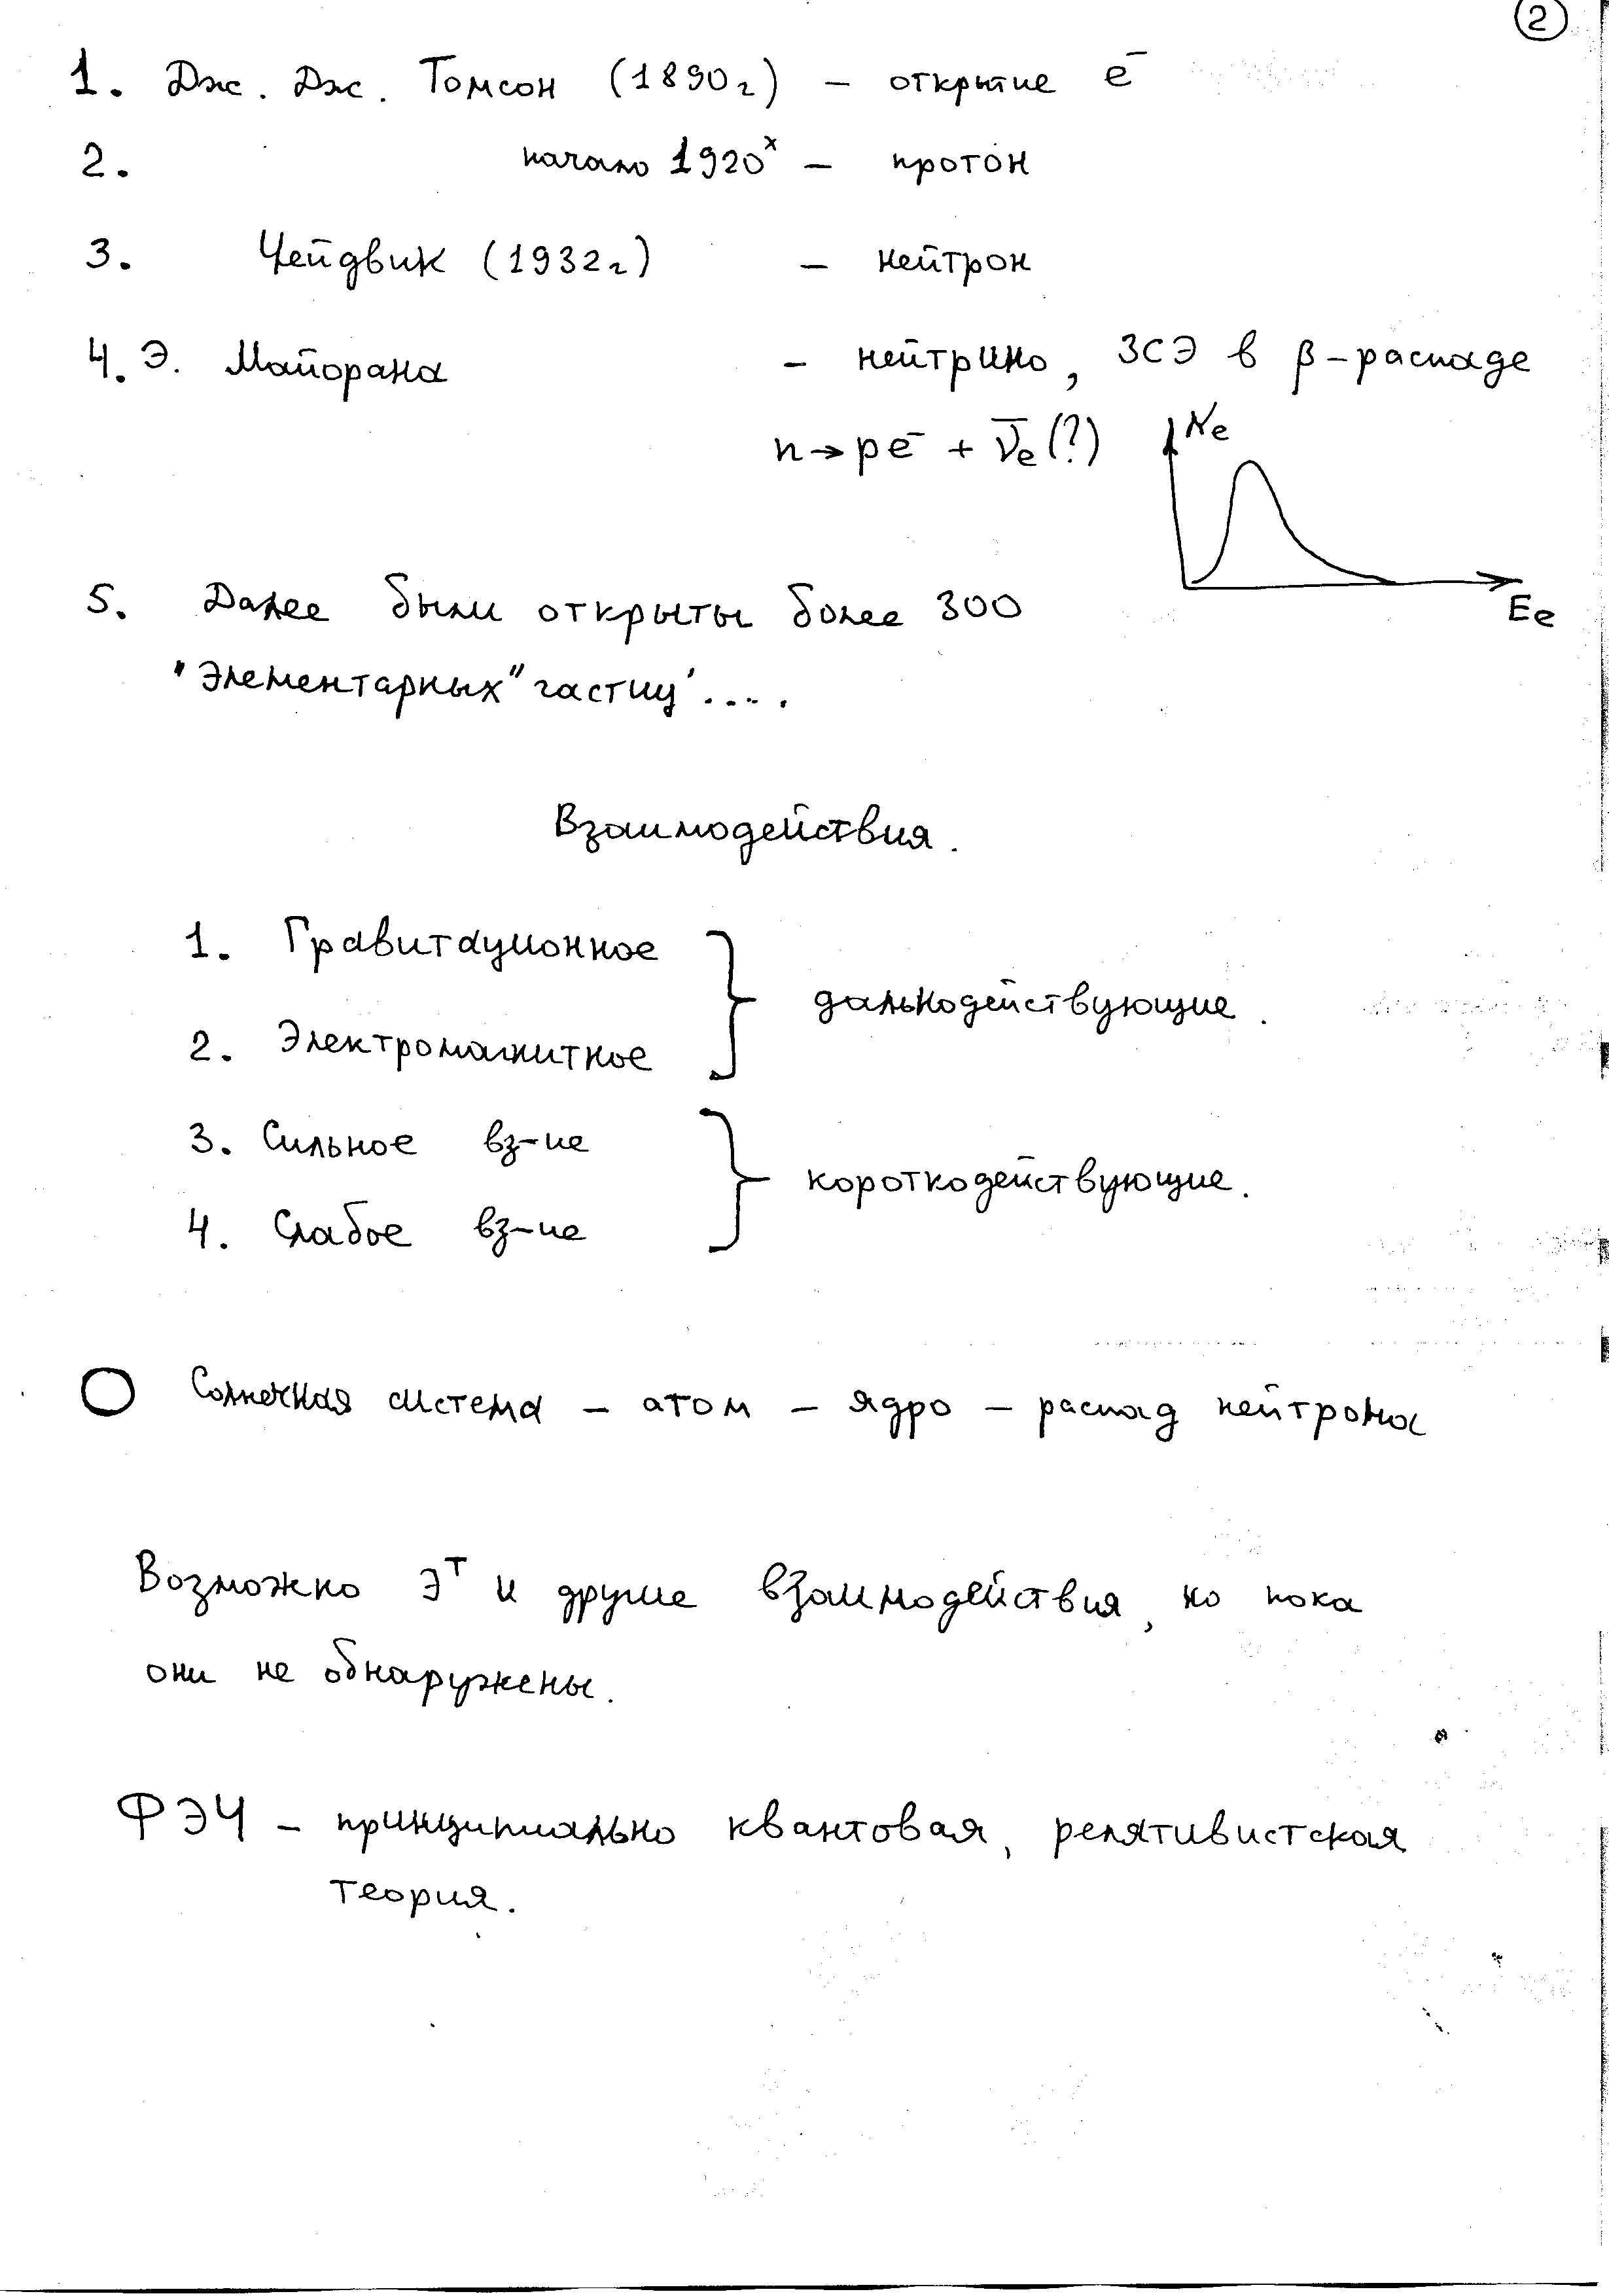 2
1. Дж. Дж. Томсон (1890г) – открытие e⁻
2. начало 1920ˣ – протон
3. Чейдвик (1932г) – нейтрон
4. Э. Майорана – нейтрино, ЗСЭ в β–распаде
n → pe⁻ + ν̄e (?)
Ne
Ee
5. Далее были открыты более 300
"Элементарных" частиц' ....
Взаимодействия.
1. Гравитационное
2. Электромагнитное
дальнодействующие.
3. Сильное вз–ие
4. Слабое вз–ие
короткодействующие.
Солнечная система – атом – ядро – распад нейтрона
Возможно ∃ᵀ и другие взаимодействия, но пока
они не обнаружены.
ФЭЧ – принципиально квантовая, релятивистская
теория.